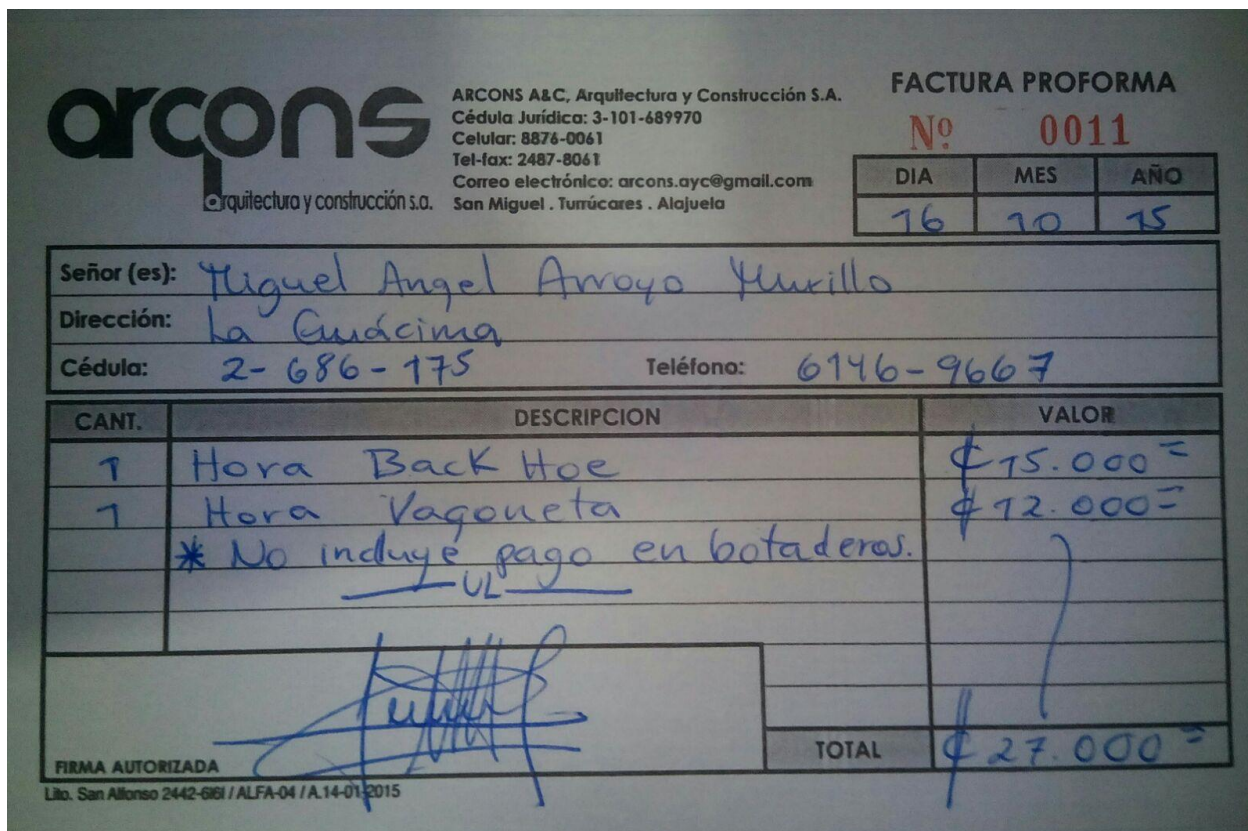 arcons
arquitectura y construcción s.a.
ARCONS A&C, Arquitectura y Construcción S.A.
Cédula Jurídica: 3-101-689970
Celular: 8876-0061
Tel-fax: 2487-8061
Correo electrónico: arcons.ayc@gmail.com
San Miguel . Turrúcares . Alajuela
FACTURA PROFORMA
Nº 0011
DIA MES AÑO
16 10 15
Señor (es): Miguel Angel Arroyo Murillo
Dirección: La Guácima
Cédula: 2-686-175 Teléfono: 6146-9667
CANT. DESCRIPCION VALOR
1 Hora Back Hoe ₡15.000=
1 Hora Vagoneta ₡12.000=
* No incluye pago en botaderos.
UL
TOTAL ₡27.000=
FIRMA AUTORIZADA
Lito. San Alfonso 2442-6161 / ALFA-04 / A.14-01-2015